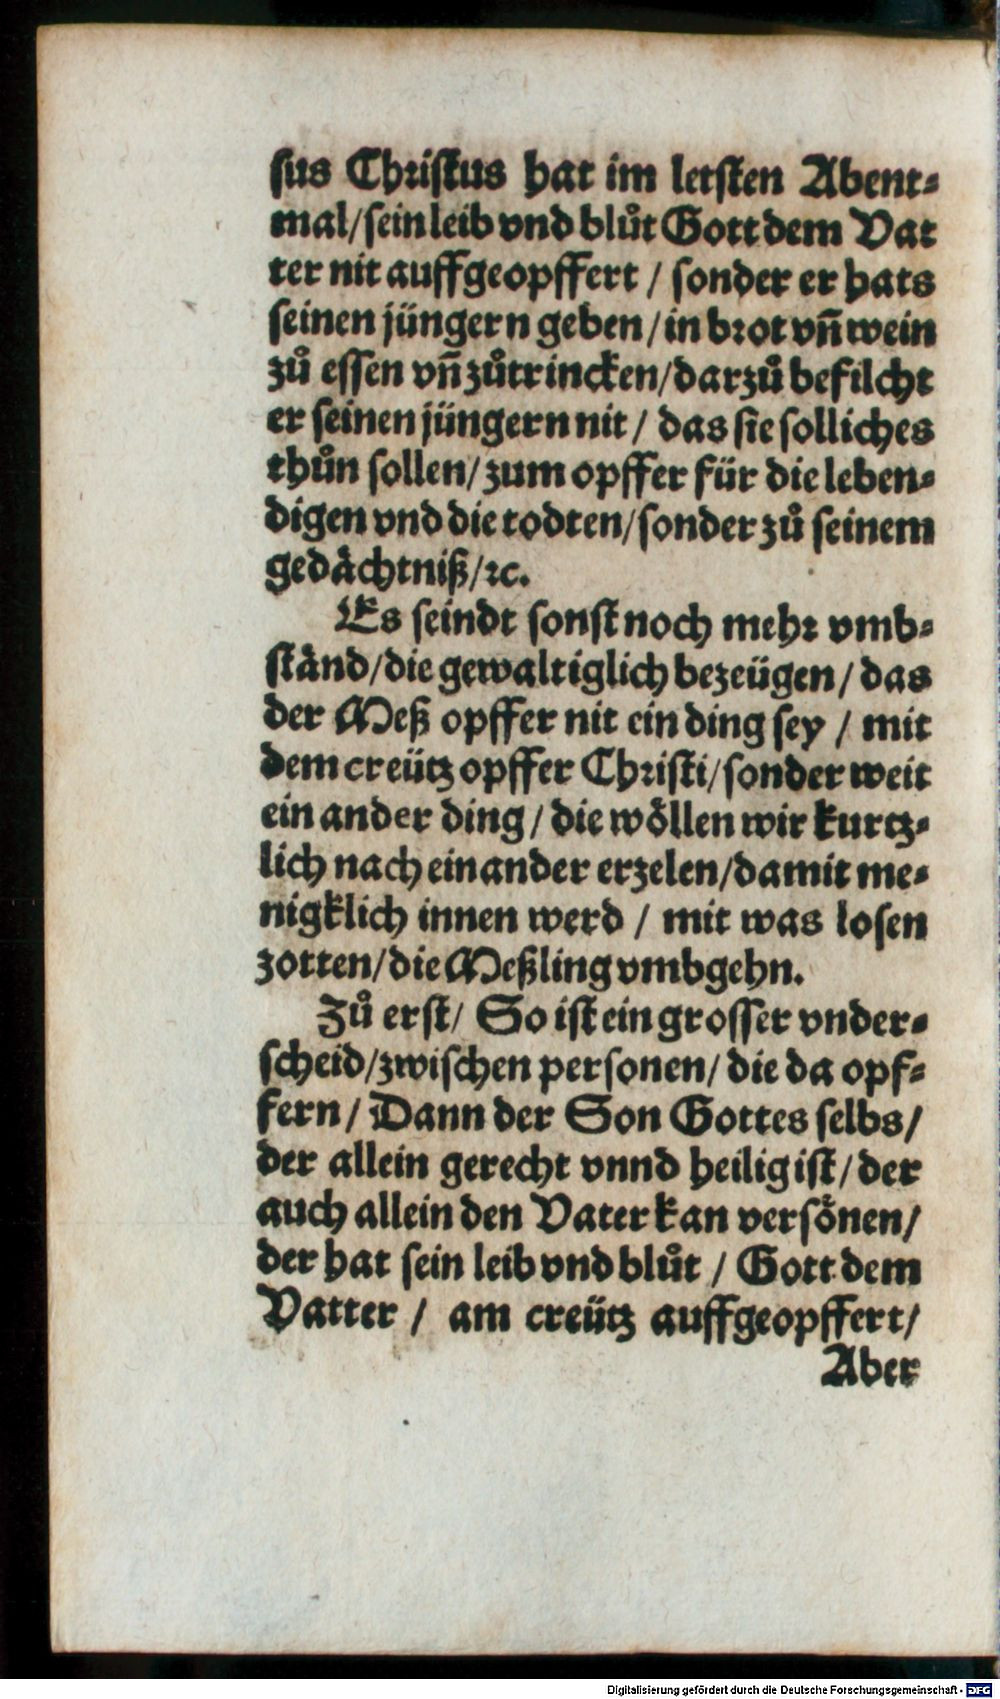 sus Christus hat im letsten Abent⸗
mal/sein leib vnd blůt Gott dem Vat
ter nit auffgeopffert / sonder er hats
seinen jüngern geben/in brot vñ wein
zů essen vñ zůtrincken/darzů befilcht
er seinen jüngern nit / das sie solliches
thůn sollen/zum opffer für die leben⸗
digen vnd die todten/sonder zů seinem
gedåchtniß/ꝛc.
Es seindt sonst noch mehr vmb⸗
stånd/die gewaltiglich bezeügen/das
der Meß opffer nit ein ding sey / mit
dem creütz opffer Christi/sonder weit
ein ander ding/die wöllen wir kurtz⸗
lich nach einander erzelen/damit me⸗
nigklich innen werd / mit was losen
zotten/die Meßling vmbgehn.
Zů erst/ So ist ein grosser vnder⸗
scheid/zwischen personen/die da opf⸗
fern/Dann der Son Gottes selbs/
der allein gerecht vnnd heilig ist/der
auch allein den Vater kan versönen/
der hat sein leib vnd blůt / Gott dem
Vatter / am creütz auffgeopffert/
Aber
Digitalisierung gefördert durch die Deutsche Forschungsgemeinschaft - DFG